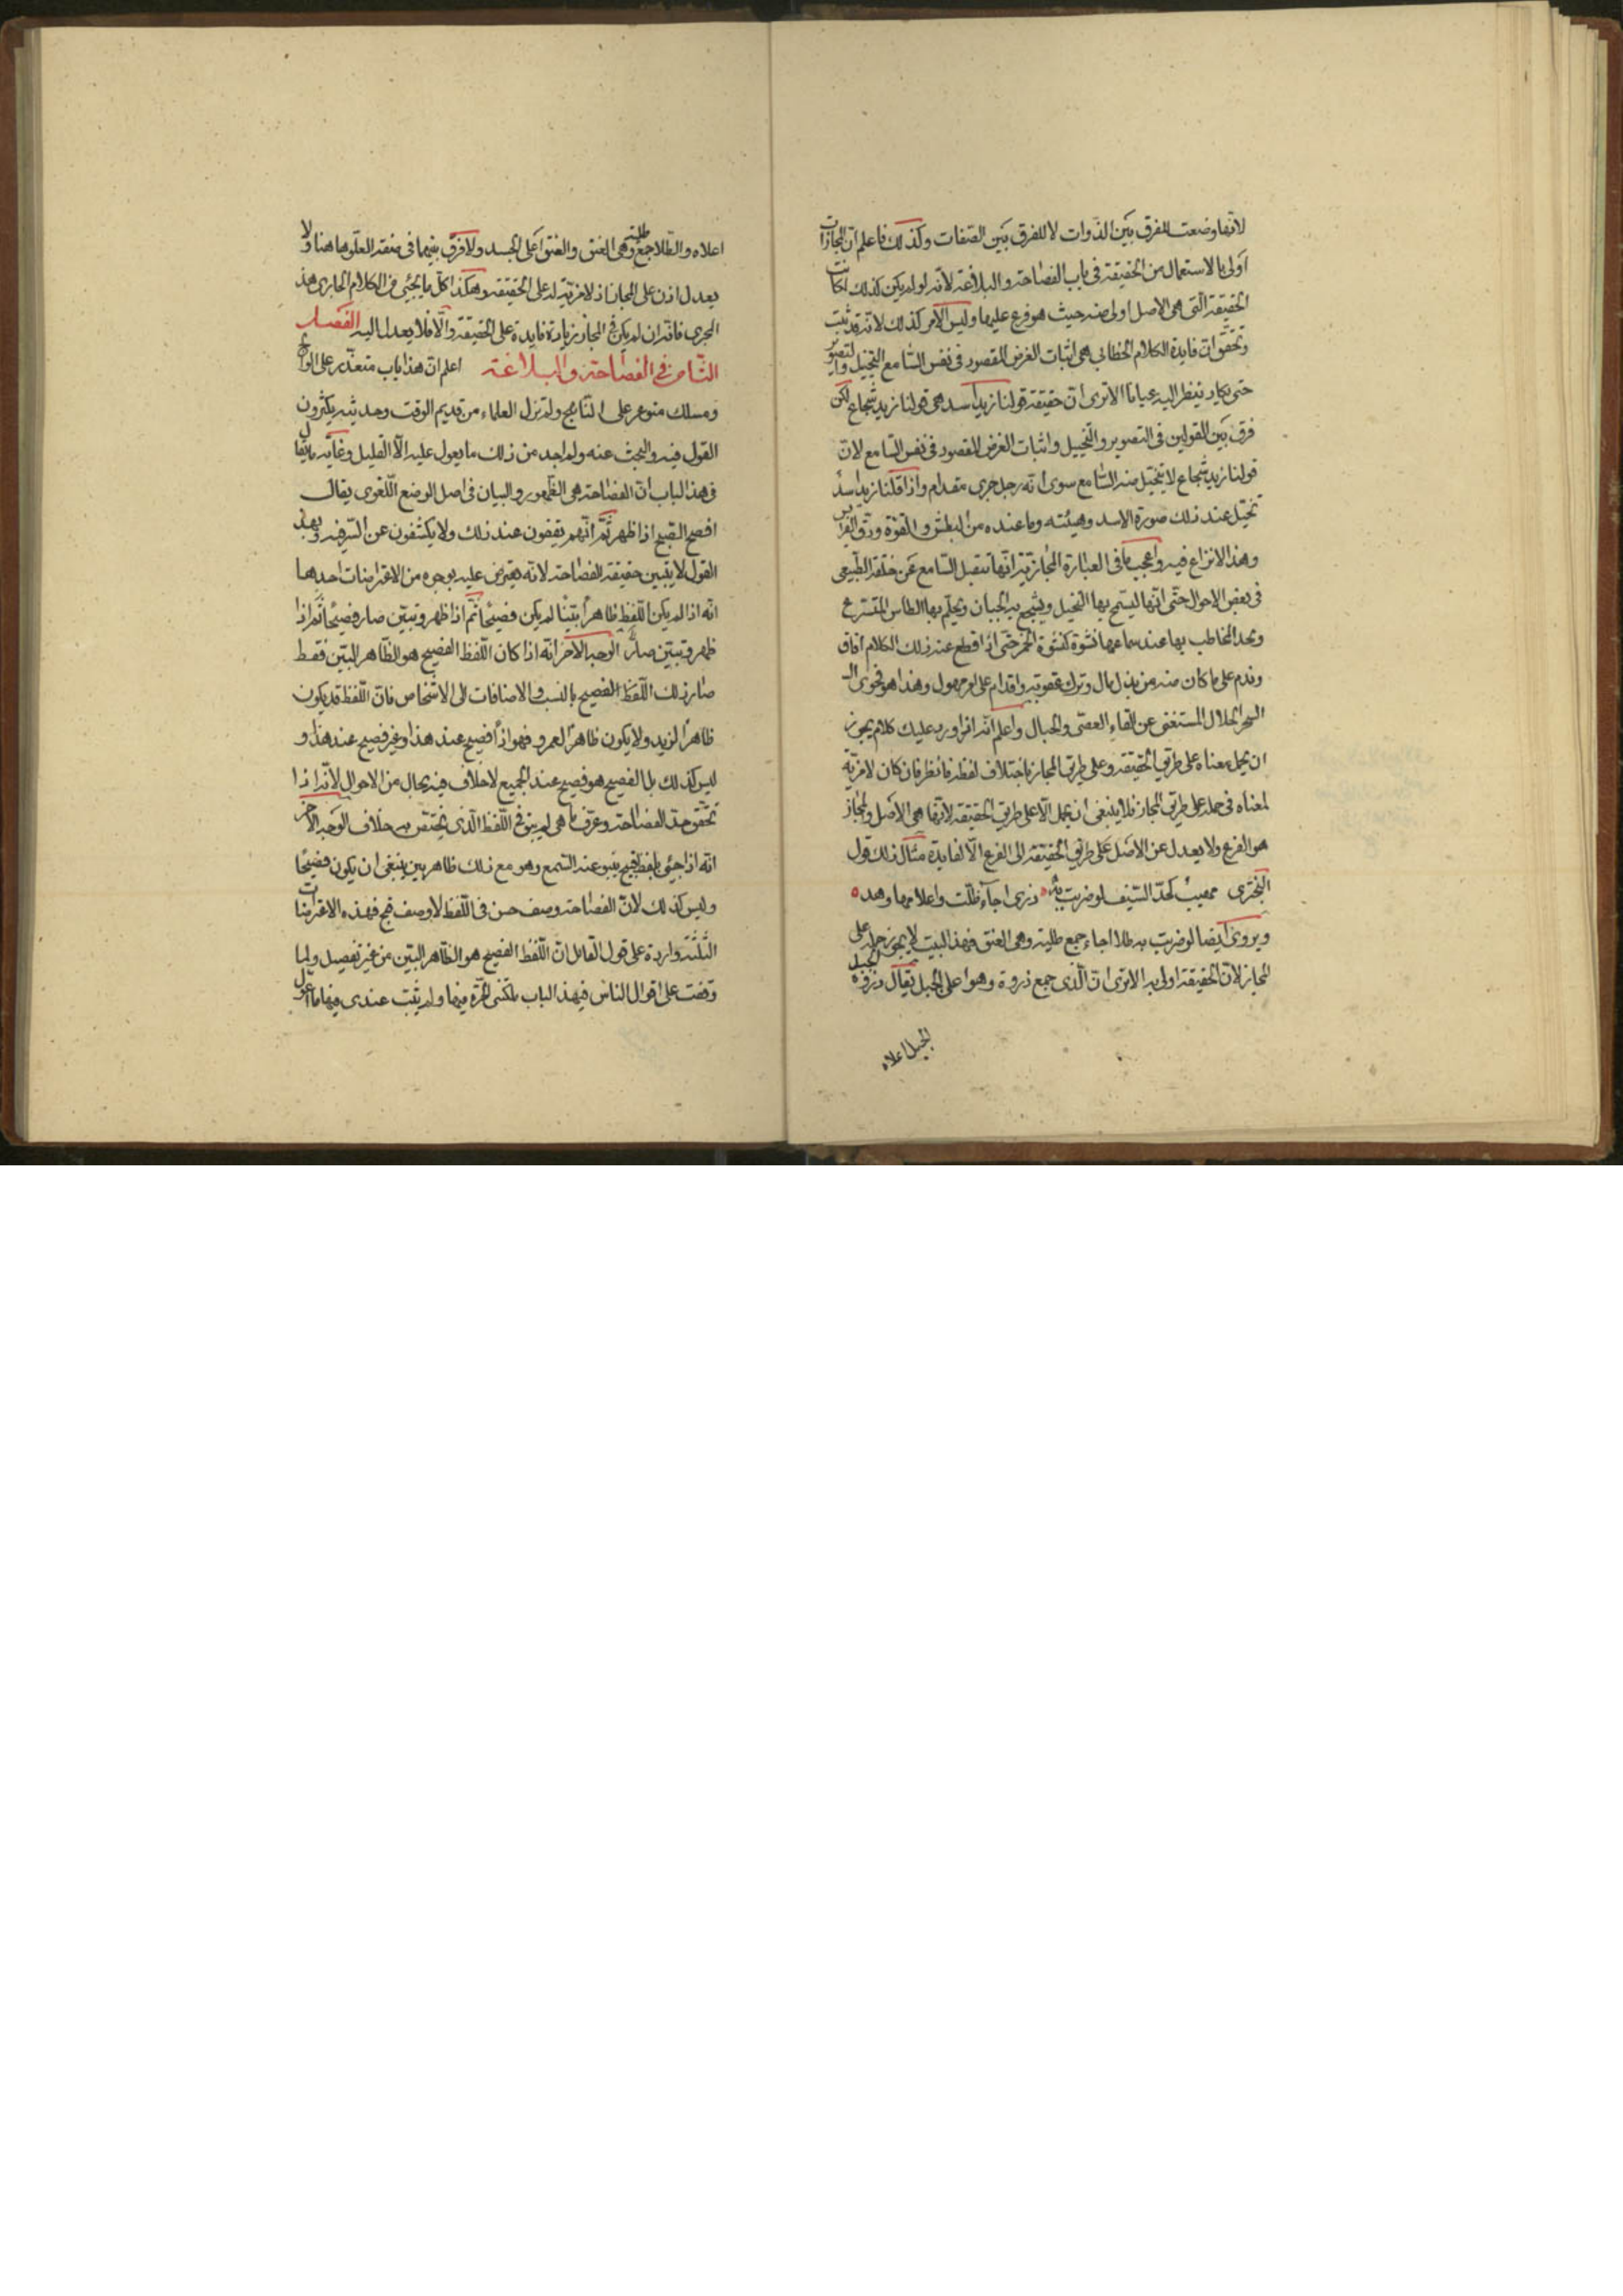 لانها وضعت للفرق بين الذوات لا للفرق بين الصفات وكذلك فاعلم ان المجازات
اولى بالاستعمال من الحقيقة في باب الفصاحة والبلاغة لانه لو لم يكن كذلك لكانت
الحقيقة التي هي الاصل اولى منه حيث هو فرع عليها وليس الامر كذلك لانه قد ثبت
وتحقق ان فايدة الكلام الخطابي هي اثبات الغرض المقصود في نفس السامع بالتخييل والتصوير
حتى يكاد ينظر اليه عيانا الا ترى ان حقيقة قولنا زيد اسد هي قولنا زيد شجاع لكن
فرق بين القولين في التصوير والتخييل واثبات الغرض المقصود في نفس السامع لان
قولنا زيد شجاع لا يتخيل منه السامع سوى انه رجل جرى مقدام واذا قلنا زيد اسد
تخيل عند ذلك صورة الاسد وهيئته وما عنده من البطش والقوة ودق الفرايس
وهذا لا نزاع فيه واعجب ما في العبارة المجازية انها تنقل السامع عن خلقه الطبيعي
في بعض الاحوال حتى انها ليسمح بها البخيل ويشجع بها الجبان ويحلم بها الطايش المتسرع
ويجد المخاطب بها عند سماعها نشوة كنشوة الخمر حتى اذا قطع عنه ذلك الكلام افاق
وندم على ما كان منه من بذل مال وترك عقوبة واقدام على امر مهول وهذا هو فحوى ال
السحر الحلال المستغنى عن القاء العصى والحبال واعلم انه اذا ورد عليك كلام يجوز
ان يحمل معناه على طريق الحقيقة وعلى طريق المجاز باختلاف لفظه فانظر فان كان لا مزية
لمعناه في حمله على طريق المجاز فلا ينبغي ان يحمل الا على طريق الحقيقة لانها هي الاصل والمجاز
هو الفرع ولا يعدل عن الاصل على طريق الحقيقة الى الفرع الا لفايدة مثال ذلك قول
البحترى مهيب كحد السيف لو ضربت به ذرى اجاء ظلت واعلامها وهد
ويروى ايضا لو ضربت به طلا اجاء جمع طلية وهي العنق فهذا البيت لا يجوز حمله على
المجاز لان الحقيقة اولى به الا ترى ان الذرى جمع ذروة وهو اعلى الجبل يقال ذروة الجبل
الجبل اعلاه
اعلاه والطلا جمع طلية وهي العنق والعنق اعلى الجسد ولا فرق بينهما في صفة العلو هاهنا ولا
يعدل اذن على المجاز اذ لا مزية له على الحقيقة وهكذا كل ما يجئ من الكلام الجارى هذا
المجرى فانه ان لم يكن في المجاز زيادة فايدة على الحقيقة والا فلا يعدل اليه الفصل
الثامن في الفصاحة والبلاغة اعلم ان هذا باب متعذر على الوالج
ومسلك متوعر على الناهج ولم تزل العلماء من قديم الوقت وحديثه يكثرون
القول فيه والبحث عنه ولم اجد من ذلك ما يعول عليه الا القليل وغاية ما يقال
في هذا الباب ان الفصاحة هي الظهور والبيان في اصل الوضع اللغوى يقال
افصح الصبح اذا ظهر ثم انهم يقفون عند ذلك ولا يكشفون عن السر فيه وبهذا
القول لا يتبين حقيقة الفصاحة لانه يعترض عليه بوجوه من الاعتراضات احدها
انه اذا لم يكن اللفظ ظاهرا بينا لم يكن فصيحا ثم اذا ظهر وتبين صار فصيحا ثم اذا
ظهر وتبين صار الوجه الاخر انه اذا كان اللفظ الفصيح هو الظاهر البين فقط
صار ذلك اللفظ الفصيح بالنسب والاضافات الى الاشخاص فان اللفظ قد يكون
ظاهرا لزيد ولا يكون ظاهرا لعمرو فهو اذا فصيح عند هذا وغير فصيح عند هذا و
ليس كذلك بل الفصيح هو فصيح عند الجميع لا خلاف فيه بحال من الاحوال لانه اذا
تحقق حد الفصاحة وعرف ما هي لم يبق في اللفظ الذي يختص به خلاف الوجه الاخر
انه اذا جيئ بلفظ قبيح ينبو عنه السمع وهو مع ذلك ظاهر بين ينبغي ان يكون فصيحا
وليس كذلك لان الفصاحة وصف حسن في اللفظ لا وصف قبح فهذه الاعتراضات
الثلثة واردة على قول القايل ان اللفظ الفصيح هو الظاهر البين من غير تفصيل ولما
وقفت على اقوال الناس في هذا الباب ملكتني الحيرة فيها ولم يثبت عندى منها ما اعول